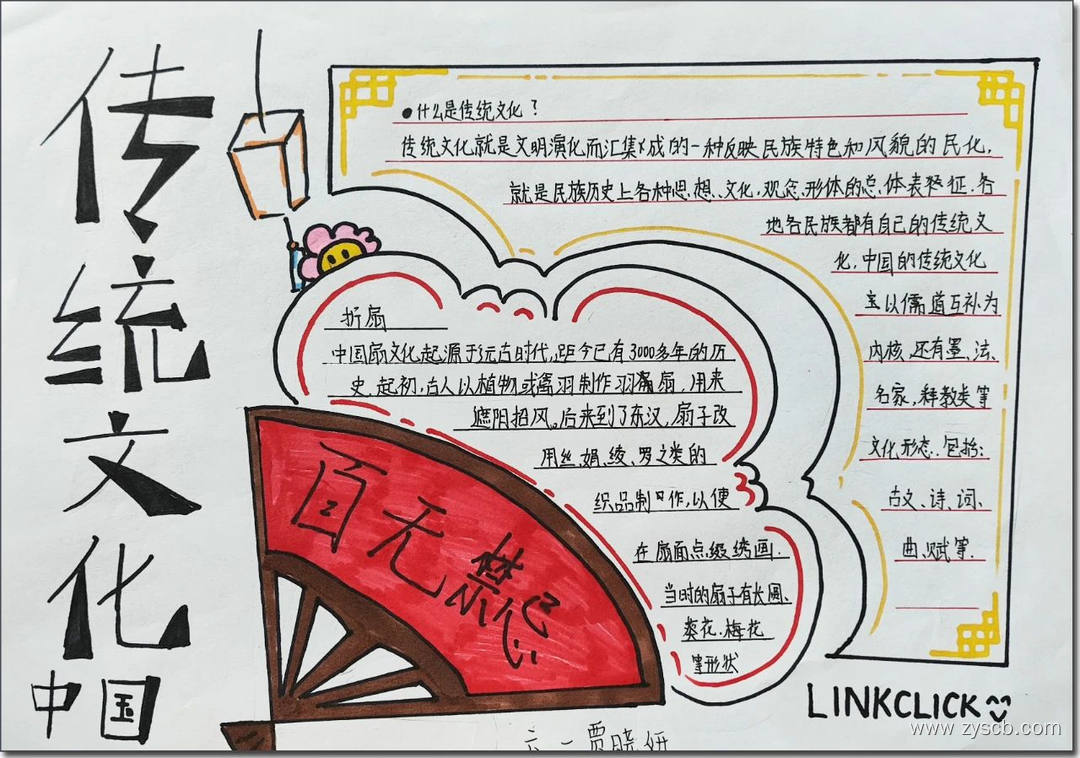 传统文化
中国
●什么是传统文化？
传统文化就是文明演化而汇集成的一种反映民族特色和风貌的民化,
就是民族历史上各种思想、文化,观念,形体的总体表征,各
地各民族都有自己的传统文
化,中国的传统文化
宝以儒道互补为
内核,还有墨、法、
名家,释教类等
文化形态.包括:
古文、诗、词、
曲、赋等.
折扇
中国扇文化起源于远古时代,距今已有3000多年的历
史,起初,古人以植物或禽羽制作羽扇,用来
遮阴招风。后来到了东汉,扇子改
用丝、娟、绫、罗之类的
织品制作,以便
在扇面点缀绣画.
当时的扇子有长圆、
葵花、梅花
等形状
百无禁忌
LINKCLICK
六一贾晓妍
www.zyscb.com